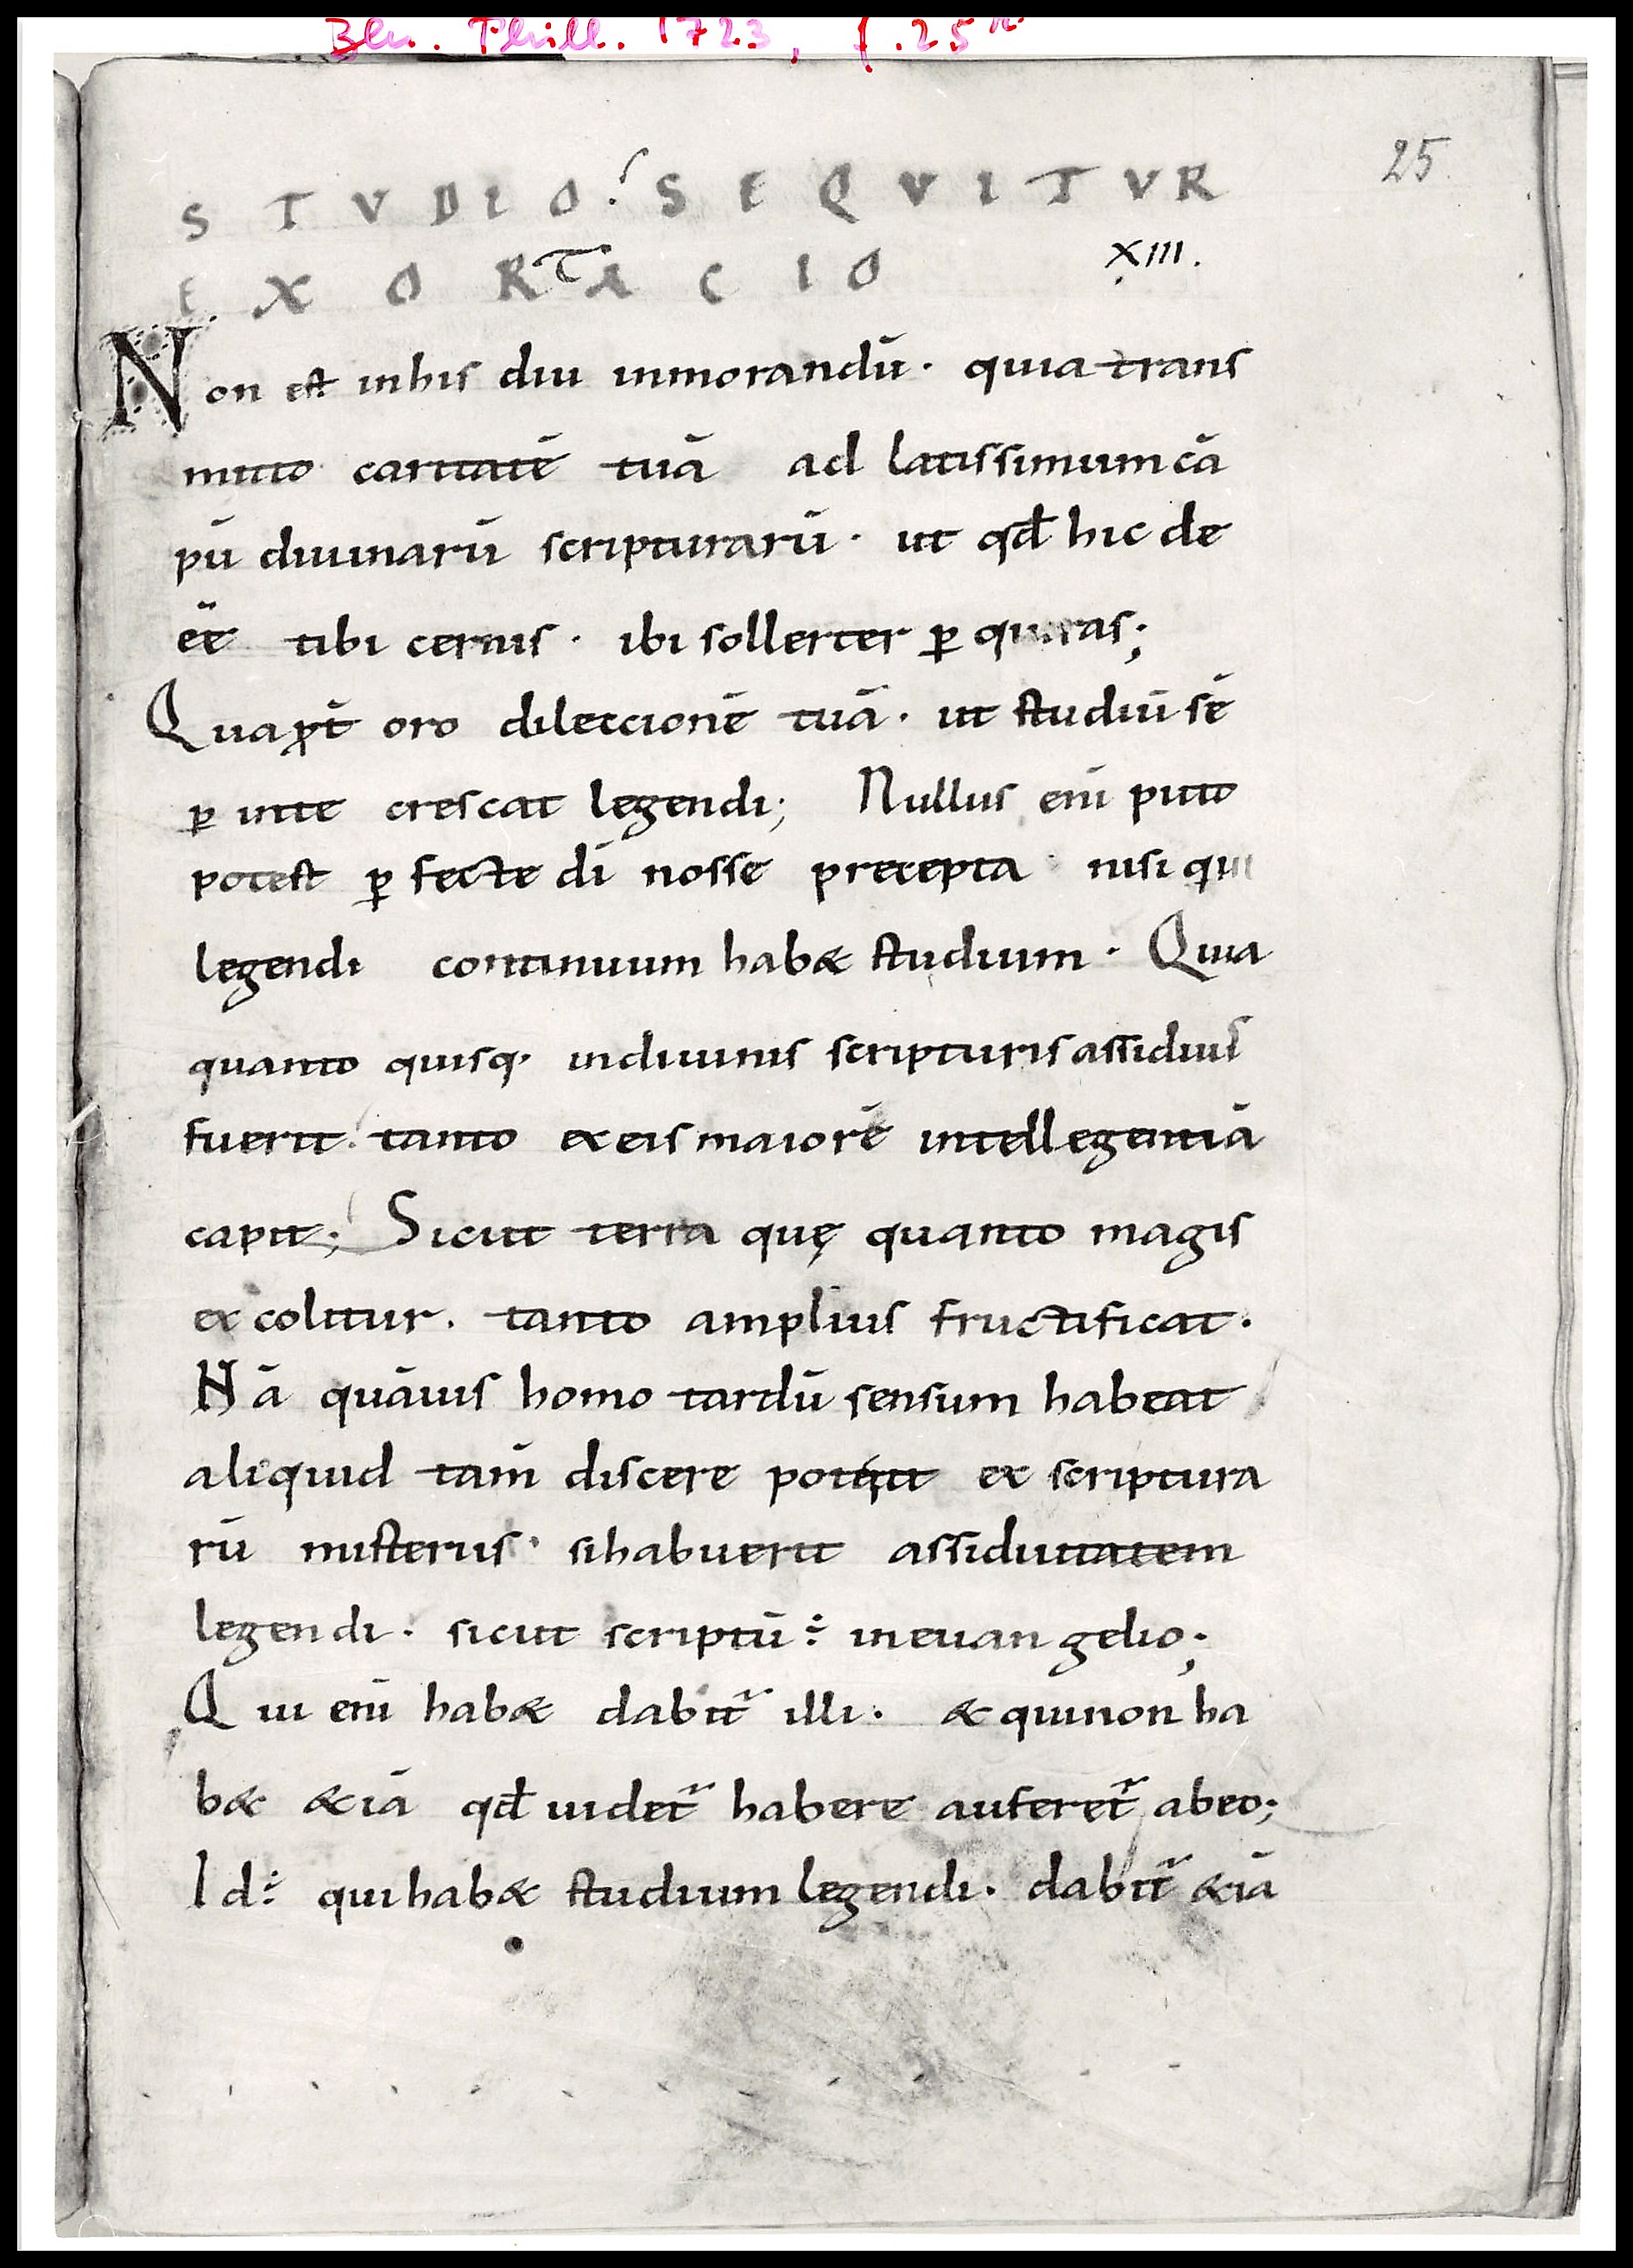 Bln. Phill. 1723, f. 25r
25
STVDIO. SEQVITVR
EXORTACIO XIII.
Non est inhis diu inmorandū. quia trans
mitto caritatē tuā ad latissimum cā
pū diuinarū scripturarū. ut qđ hic de
eē tibi cernis. ibi sollerter ꝑ quiras;
Quaꝓt̄ oro dileccionē tuā. ut studiū sē
ꝑ inte crescat legendi; Nullus eni̅ puto
potest ꝑfecte di̅ nosse precepta nisi qui
legendi continuum hab& studium. Quia
quanto quisq. indiuinis scripturis assidius
fuerit. tanto exeis maiorē intellegentiā
capit; Sicut terra quę quanto magis
excolitur. tanto amplius fructificat.
Nā quāuis homo tardū sensum habeat
aliquid tam̄ discere potęrit ex scriptura
rū misteriis. sihabuerit assiduitatem
legendi. sicut scriptū ÷ ineuangelio;
Qui eni̅ hab& dabit᷑ illi. & quinon ha
b& &iā qđ uidet᷑ habere auferet᷑ abeo;
Id ÷ quihab& studium legendi. dabit᷑ &iā